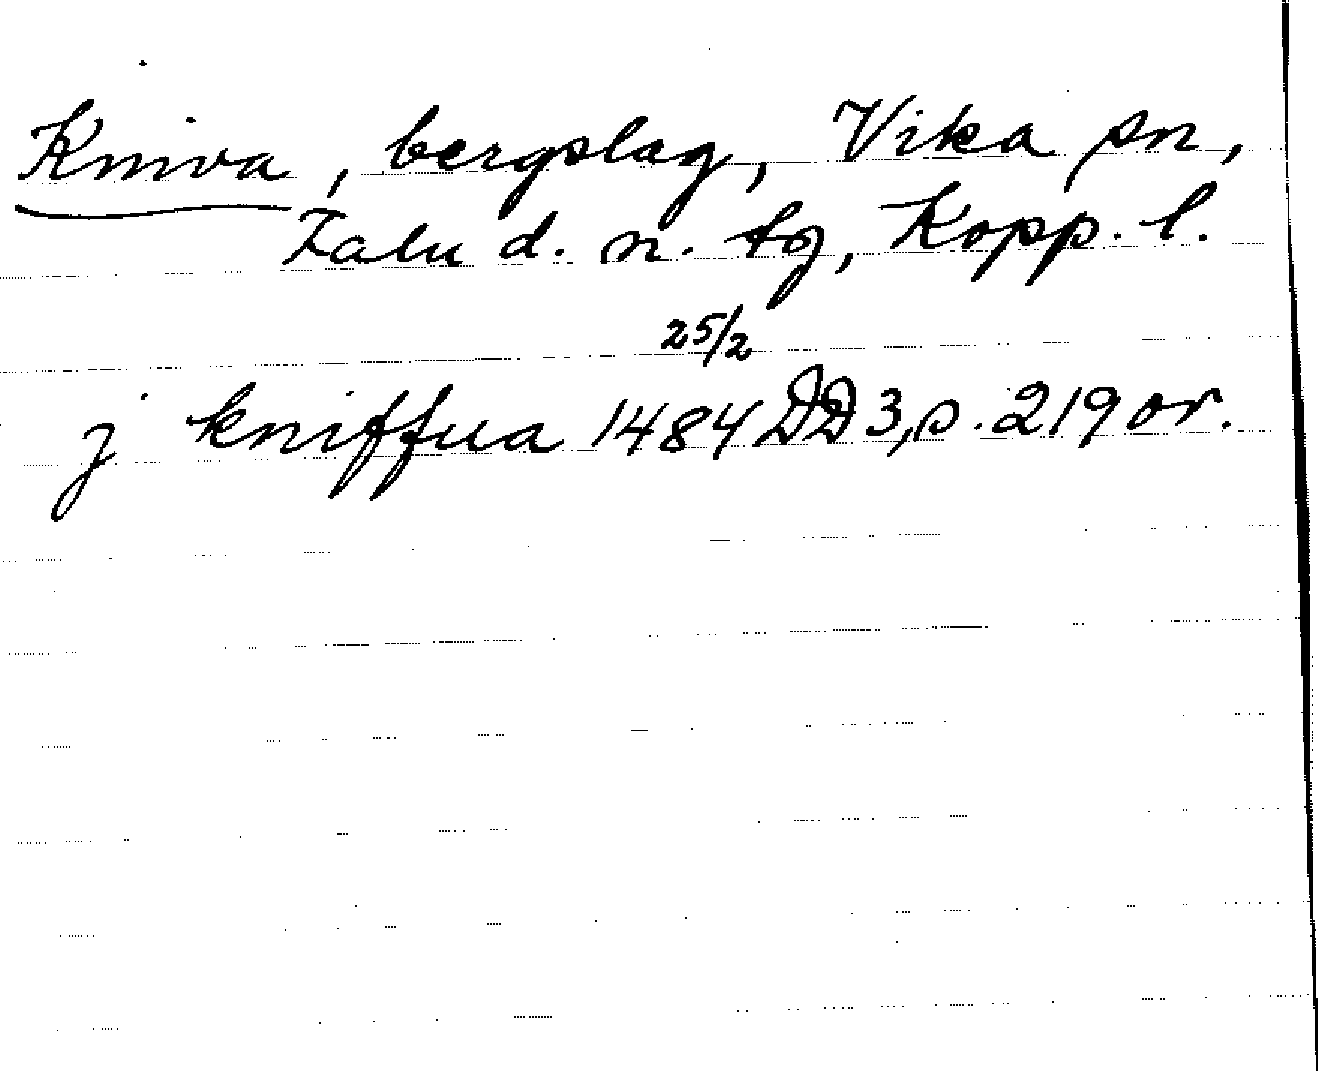 Kniva, bergslag, Vika sn,
Falu d. n. tg, Kopp. l.
25/2
j kniffua 1484 DD 3, s. 219 or.